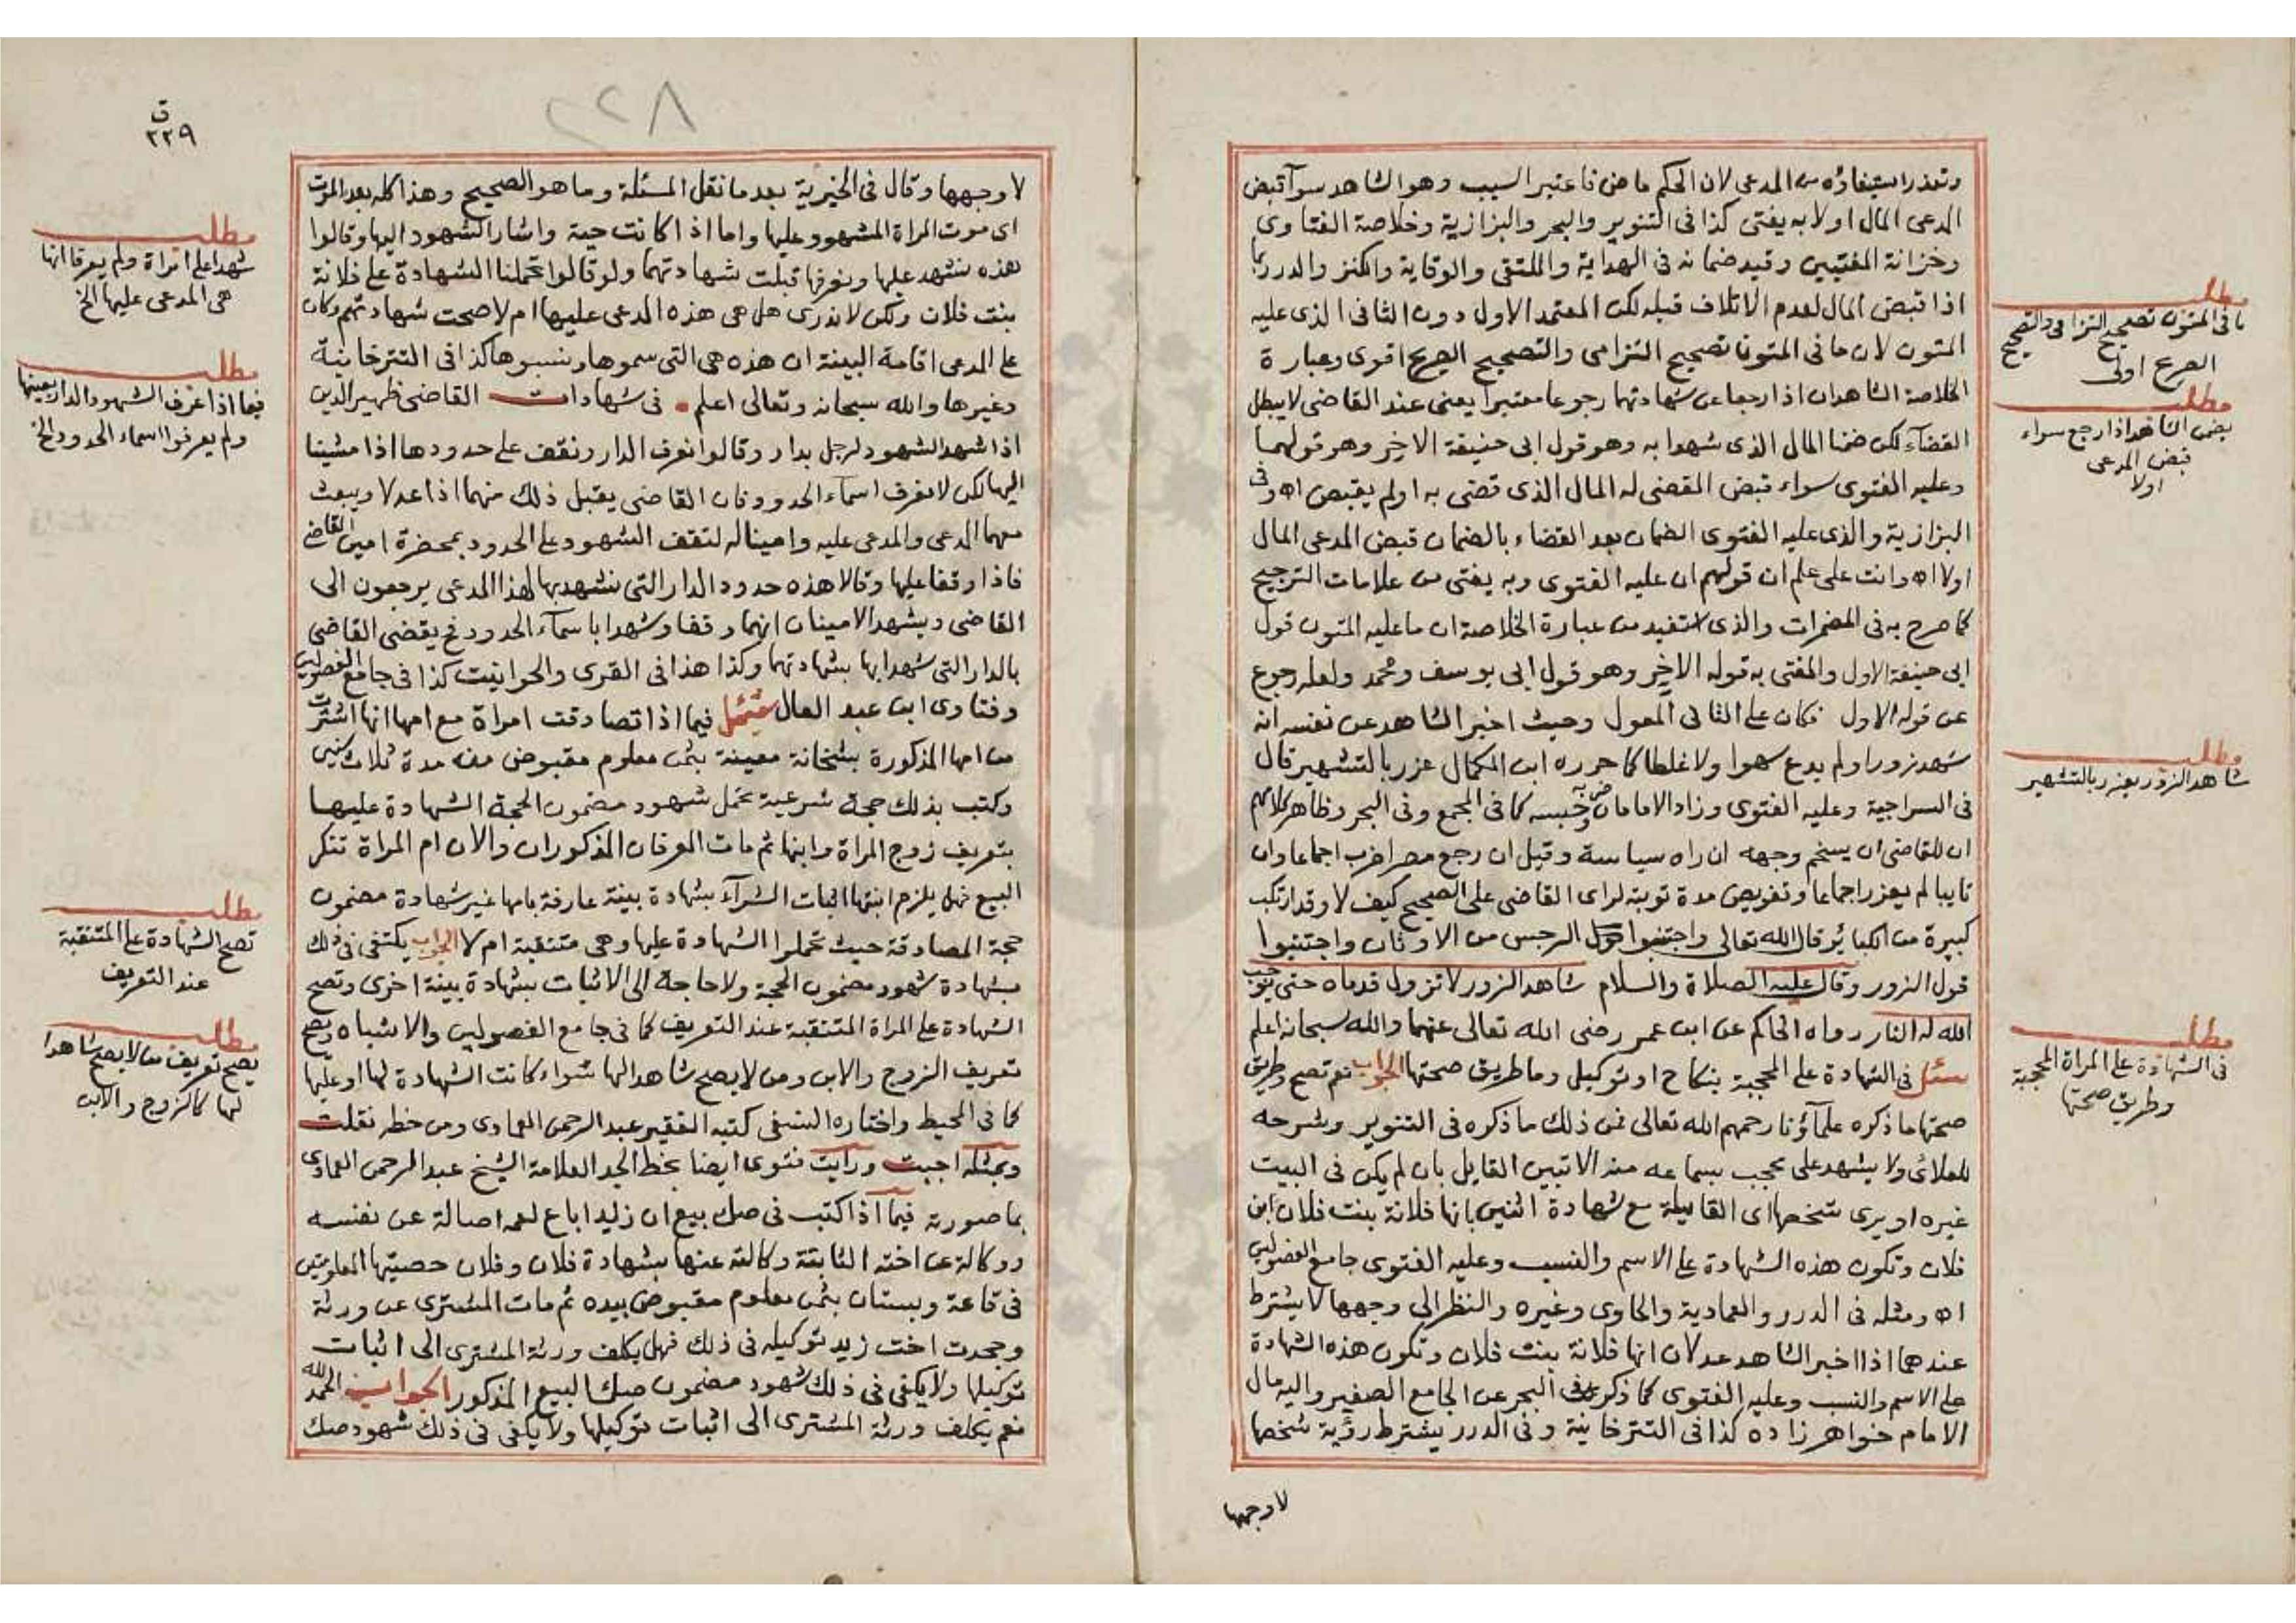 وتعذر استيفاؤه من المدعى لان الحكم ماض فاعتبر السبب وهو الشاهد سوآ قبض
المدعى المال اولا به يفتى كذا فى التنوير والبحر والبزازية وخلاصة الفتاوى
وخزانة المفتيين وقيد ضمانه فى الهداية والملتقى والوقاية والكنز والدرر بما
اذا قبض المال لعدم الاتلاف قبله لكن المعتمد الاول دون الثانى الذى عليه
المتون لان ما فى المتون تصحيح التزامى والتصحيح الصريح اقوى وعبارة
الخلاصة الشاهدان اذا رجعا عن شهادتهما رجوعا معتبرا يعنى عند القاضى لا يبطل
القضآء لكن ضمنا المال الذى شهدا به وهو قول ابى حنيفة الاخر وهو قولهما
وعليه الفتوى سواء قبض المقضى له المال الذى قضى به اولم يقبض اه وفى
البزازية والذى عليه الفتوى الضمان بعد القضاء بالضمان قبض المدعى المال
اولا اه وانت على علم ان قولهم ان عليه الفتوى وبه يفتى من علامات الترجيح
كما صرح به فى المضمرات والذى استفيد من عبارة الخلاصة ان ما عليه المتون قول
ابى حنيفة الاول والمفتى به قوله الاخر وهو قول ابى يوسف ومحمد ولعله رجوع
عن قوله الاول فكان على الثانى المعول وحيث اخبر الشاهد عن نفسه انه
شهد زورا ولم يدع سهوا ولا غلطا كما حرره ابن الكمال عزر بالتشهير قال
فى السراجية وعليه الفتوى وزاد الامامان ضربه وحبسه كما فى المجمع وفى البحر وظاهر كلامهم
ان للقاضى ان يسخم وجهه ان راه سياسة وقيل ان رجع مصرا ضرب اجماعا وان
تايبا لم يعزر اجماعا وتفويض مدة توبته لراى القاضى على الصحيح كيف لا وقد ارتكب
كبيرة من الكبائر قال الله تعالى واجتنبوا الرجس من الاوثان واجتنبوا
قول الزور وقال عليه الصلاة والسلام شاهد الزور لا تزول قدماه حتى يوجب
الله له النار رواه الحاكم عن ابن عمر رضى الله تعالى عنهما والله سبحانه اعلم
سئل فى الشهادة على المحجبة بنكاح او توكيل وما طريق صحتها الجواب نعم تصح وطريق
صحتها ما ذكره علمآؤنا رحمهم الله تعالى فمن ذلك ما ذكره فى التنوير وشرحه
للعلائى ولا يشهد على محجب بسماعه منه الا تبين القايل بان لم يكن فى البيت
غيره او يرى شخصها اى القايلة مع شهادة اثنين بانها فلانة بنت فلان ابن
فلان وتكون هذه الشهادة على الاسم والنسب وعليه الفتوى جامع الفصولين
اه ومثله فى الدرر والعمادية والحاوى وغيره والنظر الى وجهها لا يشترط
عندهما اذا اخبر الشاهد عدلان انها فلانة بنت فلان وتكون هذه الشهادة
على الاسم والنسب وعليه الفتوى كما ذكره فى البحر عن الجامع الصغير واليه مال
الامام خواهر زاده كذا فى التترخانية وفى الدرر يشترط رؤية شخصها
لا وجهها
مطلب
ما فى المتون تصحيح التزامى والتصحيح
الصريح اولى
مطلب
يضمن الشاهد اذا رجع سواء
قبض المدعى
اولا
مطلب
شاهد الزور يعزر بالتشهير
مطلب
فى الشهادة على المراة المحجبة
وطريق صحتها
٢٢٨
ق
٢٢٩
لا وجهها وقال فى الخيرية بعد ما نقل المسئلة وما هو الصحيح وهذا كله بعد الموت
اى موت المراة المشهود عليها واما اذا كانت حية واشار الشهود اليها وقالوا
هذه نشهد عليها ونعرفها قبلت شهادتهما ولو قالوا تحملنا الشهادة على فلانة
بنت فلان ولكن لا ندرى هل هى هذه المدعى عليها ام لا صحت شهادتهم وكان
على المدعى اقامة البينة ان هذه هى التى سموها ونسبوها كذا فى التترخانية
وغيرها والله سبحانه وتعالى اعلم فى شهادات القاضى ظهير الدين
اذا شهد الشهود لرجل بدار وقالوا نعرف الدار ونقف على حدودها اذا مشينا
اليها لكن لا نعرف اسمآء الحدود فان القاضى يقبل ذلك منهما اذا عدلا ويبعث
معهما المدعى والمدعى عليه وامينا له لتقف الشهود على الحدود بمحضرة امين القاضى
فاذا وقفا عليها وقالا هذه حدود الدار التى نشهد بها لهذا المدعى يرجعون الى
القاضى ويشهد الامينان انهما وقفا وشهدا باسمآء الحدود فح يقضى القاضى
بالدار التى شهدا بها بشهادتهما وكذا هذا فى القرى والحوانيت كذا فى جامع الفصولين
وفتاوى ابن عبد العال سئل فيما اذا تصادقت امراة مع امها انها اشترت
من امها المذكورة بشخانة معينة بثمن معلوم مقبوض منه مدة ثلاث سنين
وكتب بذلك حجة شرعية تحمل شهود مضمون الحجة الشهادة عليها
بتعريف زوج المراة وابنها ثم مات المعرفان المذكوران والان ام المراة تنكر
البيع فهل يلزم ابنتها اثبات الشرآء بشهادة بينة عارفة بامها غير شهادة مضمون
حجة المصادقة حيث تحملوا الشهادة عليها وهى متنقبة ام لا الجواب يكتفى فى ذلك
بشهادة شهود مضمون الحجة ولا حاجة الى الاثبات بشهادة بينة اخرى وتصح
الشهادة على المراة المتنقبة عند التعريف كما فى جامع الفصولين والاشباه ويصح
تعريف الزوج والابن ومن لا يصح شاهدا لها سواء كانت الشهادة لها او عليها
كما فى المحيط واختاره النسفى كتبه الفقير عبد الرحمن العمادى ومن خطه نقلت
وبمثله اجبت ورايت فتوى ايضا بخط الجد العلامة الشيخ عبد الرحمن العمادى
بما صورته فيما اذا كتب فى صك بيع ان زيدا باع لعمه اصالة عن نفسه
ووكالة عن اخته الثابتة وكالته عنها بشهادة فلان وفلان حصتيها المعلومتين
فى قاعة وبستان بثمن معلوم مقبوض بيده ثم مات المشترى عن ورثة
وجحدت اخت زيد توكيله فى ذلك فهل يكلف ورثة المشترى الى اثبات
توكيلها ولا يكفى فى ذلك شهود مضمون صك البيع المذكور الجواب الحمد لله
نعم يكلف ورثة المشترى الى اثبات توكيلها ولا يكفى فى ذلك شهود صك
مطلب
شهدا على امراة ولم يعرفا انها
هى المدعى عليها الخ
مطلب
فيما اذا عرف الشهود الدار بعينها
ولم يعرفوا اسماء الحدود الخ
مطلب
تصح الشهادة على المتنقبة
عند التعريف
مطلب
يصح تعريف من لا يصح شاهدا
لها كالزوج والابن